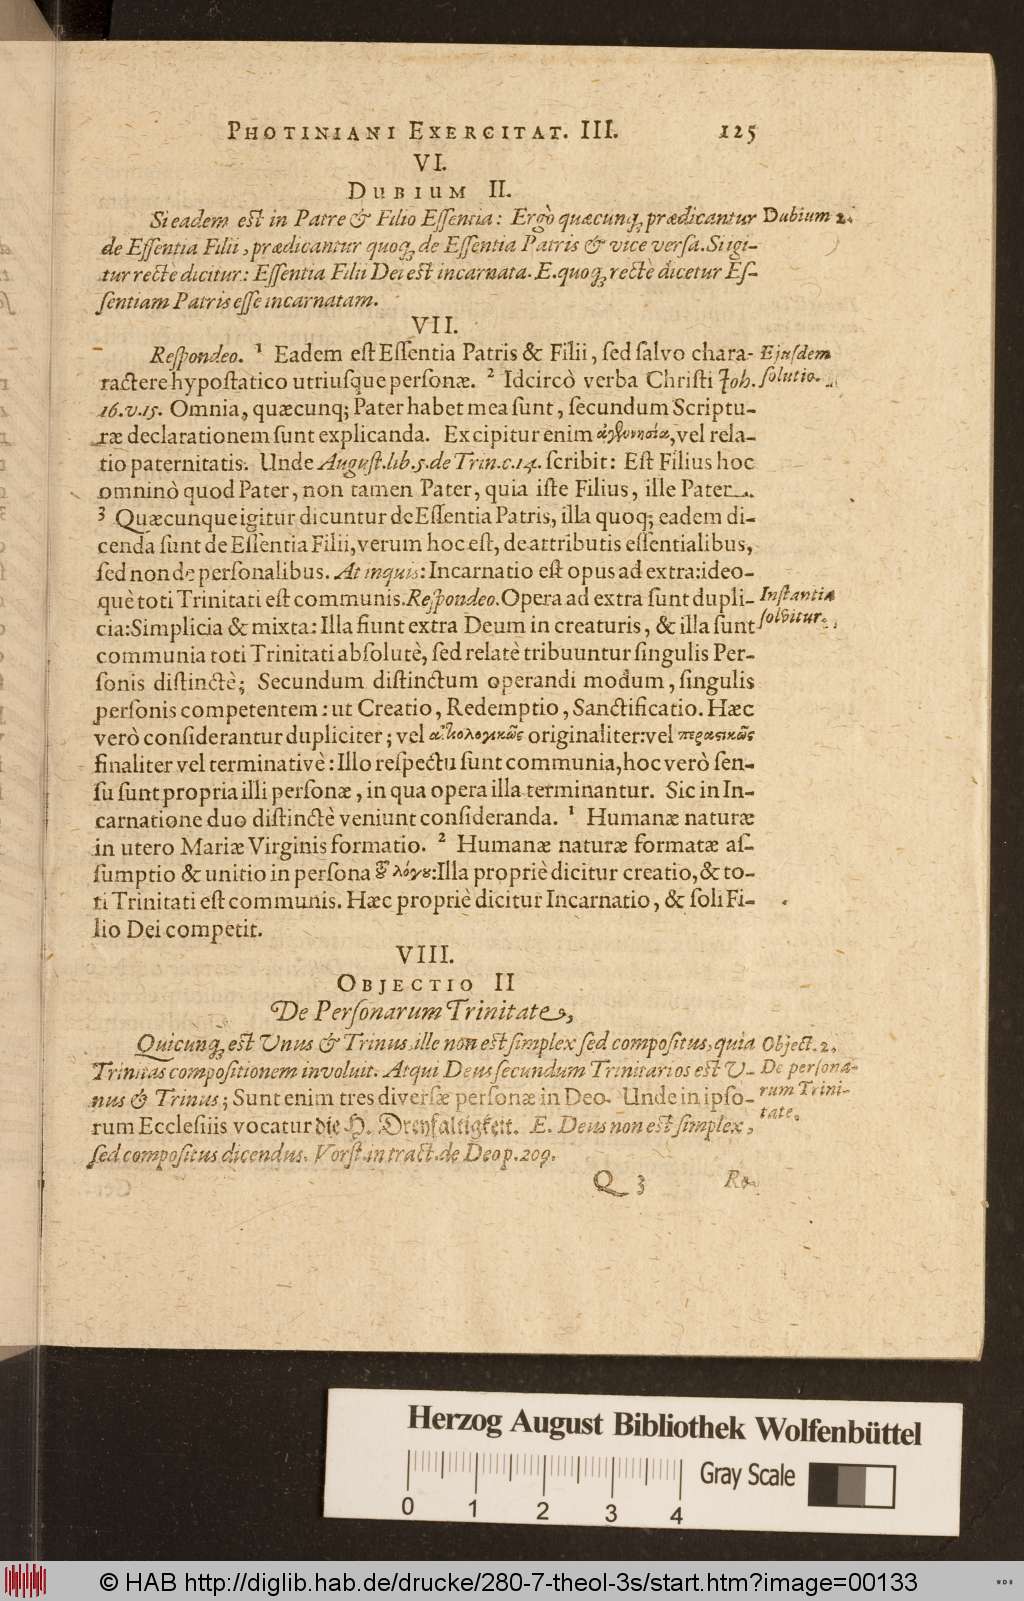 PHOTINIANI EXERCITAT. III. 125
VI.
DUBIUM II.
Si eadem est in Patre & Filio Eſſentia: Ergò quæcunq; prædicantur
Dubium 2.
de Eſſentia Filii, prædicantur quoq; de Eſſentia Patris & vice verſa. Si igi-
tur rectè dicitur: Eſſentia Filii Dei est incarnata. E. quoq; rectè dicetur Eſ-
ſentiam Patris eſſe incarnatam.
VII.
Reſpondeo. ¹ Eadem eſt Eſſentia Patris & Filii, ſed ſalvo chara-
Ejuſdem
ractere hypoſtatico utriuſque perſonæ. ² Idcircò verba Chriſti Joh.
ſolutio.
16. v. 15. Omnia, quæcunq; Pater habet mea ſunt, ſecundum Scriptu-
ræ declarationem ſunt explicanda. Excipitur enim ἀγεννησία, vel rela-
tio paternitatis. Unde Auguſt. lib. 5. de Trin. c. 14. ſcribit: Eſt Filius hoc
omninò quod Pater, non tamen Pater, quia iſte Filius, ille Pater.
³ Quæcunque igitur dicuntur de Eſſentia Patris, illa quoq; eadem di-
cenda ſunt de Eſſentia Filii, verum hoc eſt, de attributis eſſentialibus,
ſed non de perſonalibus. At inquis: Incarnatio eſt opus ad extra: ideo-
què toti Trinitati eſt communis. Reſpondeo. Opera ad extra ſunt dupli-
Inſtantia
cia: Simplicia & mixta: Illa fiunt extra Deum in creaturis, & illa ſunt
ſolvitur.
communia toti Trinitati abſolutè, ſed relatè tribuuntur ſingulis Per-
ſonis diſtinctè; Secundum diſtinctum operandi modum, ſingulis
perſonis competentem: ut Creatio, Redemptio, Sanctificatio. Hæc
verò conſiderantur dupliciter; vel originaliter: vel
finaliter vel terminativè: Illo reſpectu ſunt communia, hoc verò ſen-
ſu ſunt propria illi perſonæ, in qua opera illa terminantur. Sic in In-
carnatione duo diſtinctè veniunt conſideranda. ¹ Humanæ naturæ
in utero Mariæ Virginis formatio. ² Humanæ naturæ formatæ aſ-
ſumptio & unitio in perſona τοῦ λόγου: Illa propriè dicitur creatio, & to-
ti Trinitati eſt communis. Hæc propriè dicitur Incarnatio, & ſoli Fi-
lio Dei competit.
VIII.
OBJECTIO II
De Perſonarum Trinitate,
Quicunq; est Unus & Trinus, ille non est ſimplex ſed compoſitus, quia
Object. 2.
Trinitas compoſitionem involuit. Atqui Deus ſecundum Trinitarios est U-
De perſona-
nus & Trinus; Sunt enim tres diverſæ perſonæ in Deo. Unde in ipſo-
rum Trini-
rum Eccleſiiis vocatur die H. Dreyfaltigkeit. E. Deus non est ſimplex,
tate.
ſed compoſitus dicendus. Vorſt. in tract. de Deo p. 209.
Q 3 Re-
Herzog August Bibliothek Wolfenbüttel
Gray Scale
0 1 2 3 4
© HAB http://diglib.hab.de/drucke/280-7-theol-3s/start.htm?image=00133